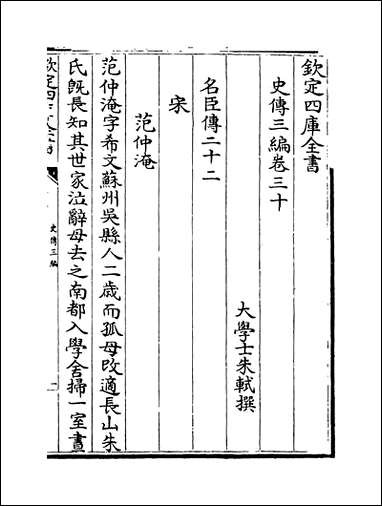 欽定四庫全書
史傳三編卷三十
大學士朱軾撰
名臣傳二十二
宋
范仲淹
范仲淹字希文蘇州吳縣人二歲而孤母改適長山朱
氏既長知其世家泣辭母去之南都入學舍掃一室晝
史傳三編
一